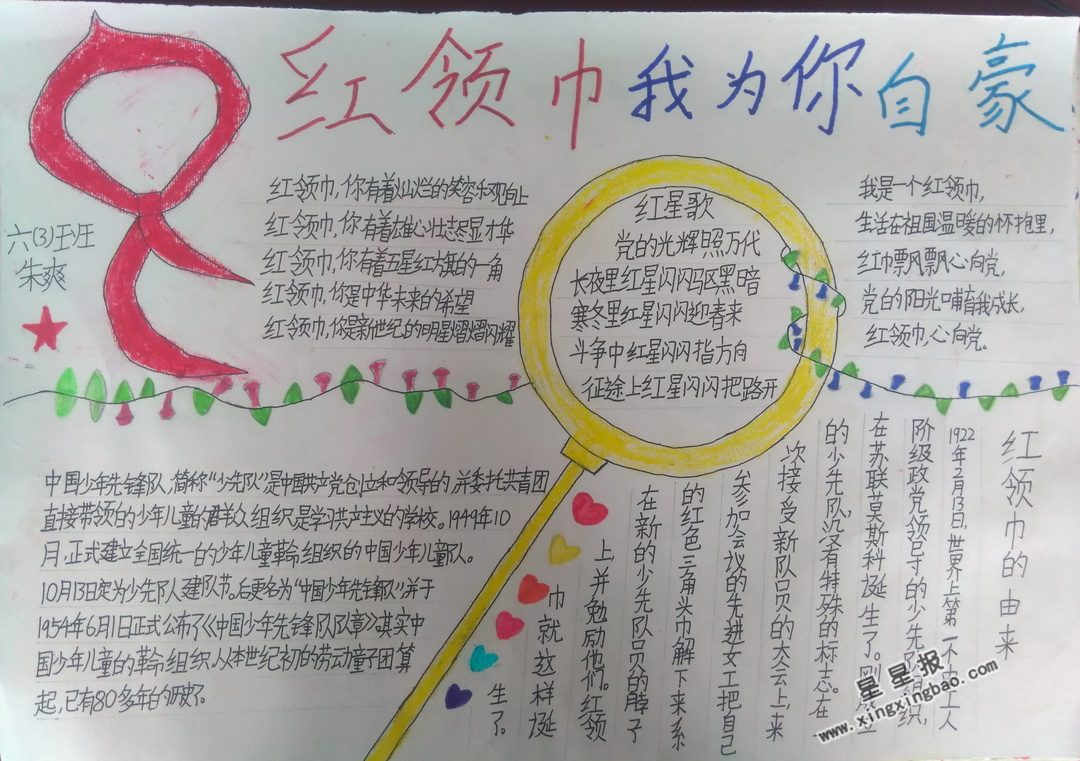 红领巾我为你自豪
六(3)班
朱爽
红领巾,你有着灿烂的笑容和观向上
红领巾,你有着雄心壮志显才华
红领巾,你有着五星红旗的一角
红领巾,你是中华未来的希望
红领巾,你是新世纪的明星熠熠闪耀
红星歌
党的光辉照万代
长夜里红星闪闪驱黑暗
寒冬里红星闪闪迎春来
斗争中红星闪闪指方向
征途上红星闪闪把路开
我是一个红领巾,
生活在祖国温暖的怀抱里,
红巾飘飘心向党,
党的阳光哺育我成长,
红领巾,心向党。
中国少年先锋队,简称“少先队”是中国共产党创立和领导的,并委托共青团
直接带领的少年儿童的群众组织,是学习共产主义的学校。1949年10
月,正式建立全国统一的少年儿童革命组织的中国少年儿童队。
10月13日定为少先队建队节。后更名为“中国少年先锋队”并于
1954年6月1日正式公布了《中国少年先锋队队章》其实中
国少年儿童的革命组织,从本世纪初的劳动童子团算
起,已有80多年的历史了。
红领巾的由来
1922年2月13日,世界上第一个
阶级政党领导的少先队组织,
在苏联莫斯科诞生了。
的少先队没有特殊的标志。在
次接受新队员的大会上,来
参加会议的先进女工把自己
的红色三角头巾解下来系
在新的少先队员的脖子
上并勉励他们。红领
巾就这样诞
生了。
星星报
www.xingxingbao.com